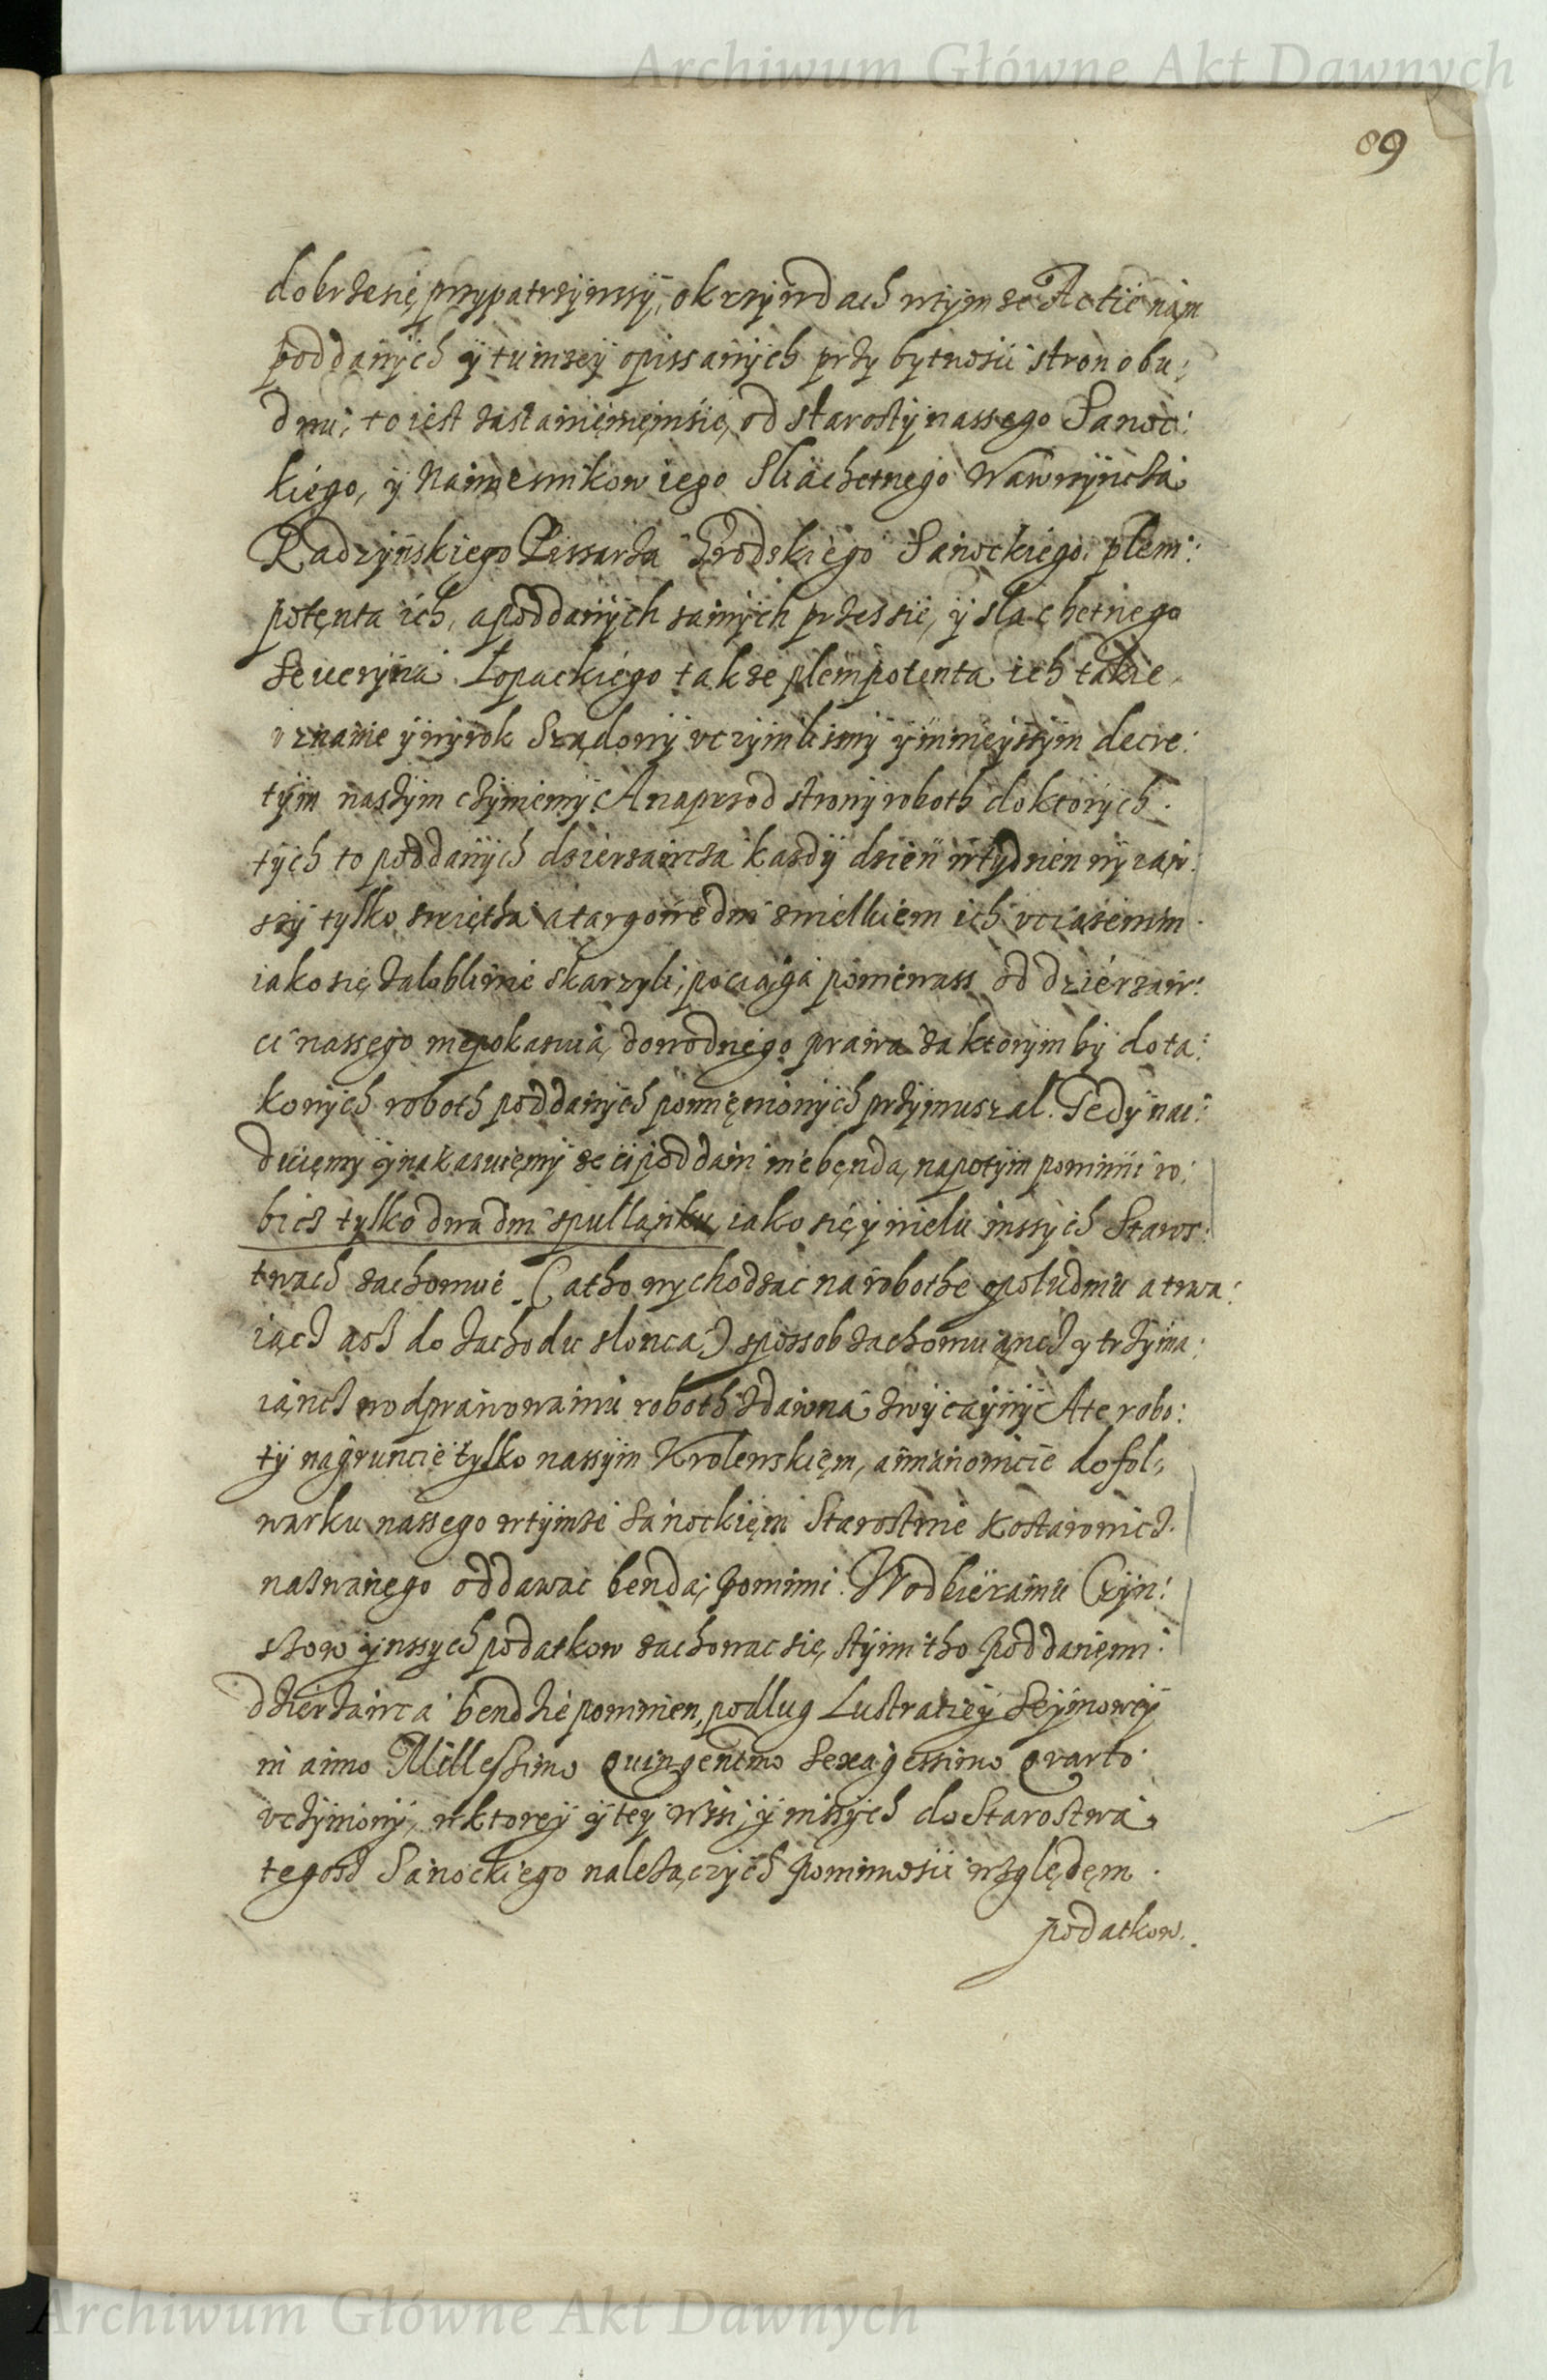 Archiwum Główne Akt Dawnych
89
dobrze się przypatrzÿwssÿ, o krzÿwdach wtÿmze Actie nąm
poddanÿch ÿ tuinzeÿ opissanÿch przÿ bytnosci stron obu:
dwu; to iest zastawięnięmsię, od starostÿ nassego Sanoc:
kiego, ÿ Namiesnikow iego Sliachetnego Wawrzÿncza
Radzÿnskiego Pissarza Grodskiego Sanockiego plem:
potenta ich, a poddanÿch samÿch przes się, ÿ slachetnego
Seuerÿna Łopackiego takze plempotenta ich takie
vznanie ÿ wÿrok Sządowÿ vczÿnilismÿ ÿ ninieÿszÿm decre:
tÿm naszÿm czÿniemÿ. A naprzod stronÿ roboth do ktorÿch
tÿch to poddanÿch dzierzawcza kazdÿ dzien w tydzien wÿiąw
szÿ tylko swiętha a targowe dni z wielkiem ich vciązenim
iako się załobliwie skarzyli, pociąga poniewass od dzierzaw:
ci nassego niepokazuia, dowodnego prawa za ktorÿm bÿ do ta:
kowÿch roboth poddanÿch pomięnionÿch przÿmuszal. Tedÿ nai:
duięmÿ ÿ nakazuięmÿ ze ci poddani nie będa, napotÿm powinni ro:
bicz tylko dwa dni s pułłanku, iako się ÿ wielu inssÿch Staros:
twach zachowuie. (a tho wychodząc na robothe o poludniu a trwa:
iącz asz do zachodu slonca) spossob zachowuiąncz ÿ trzÿma:
iąncz w odprawowaniu roboth zdawna zwÿcaÿnÿ A te robo:
tÿ na gruncie tylko nassÿm Krolewskięm, a mianowicie do fol:
warku nassego w tÿmze Sanockięm Starostwie Kostarowicz
nazwanego oddawac benda, powinni. W odbieraniu Czÿn:
szow ÿ inssych podatkow zachowac się, s tÿmi tho poddanięmi
dzierzawca bendzie powinien, podlug Lustraciey Seÿmoweÿ
in anno Millessimo Quingentmo Sexagessimo Qvarto
vczÿnionÿ, w ktoreÿ ÿ teÿ wssi, ÿ inssÿch do Starostwa
tegosz Sanockiego nalezączÿch powinnosci względęm
podatkow.
Archiwum Główne Akt Dawnych